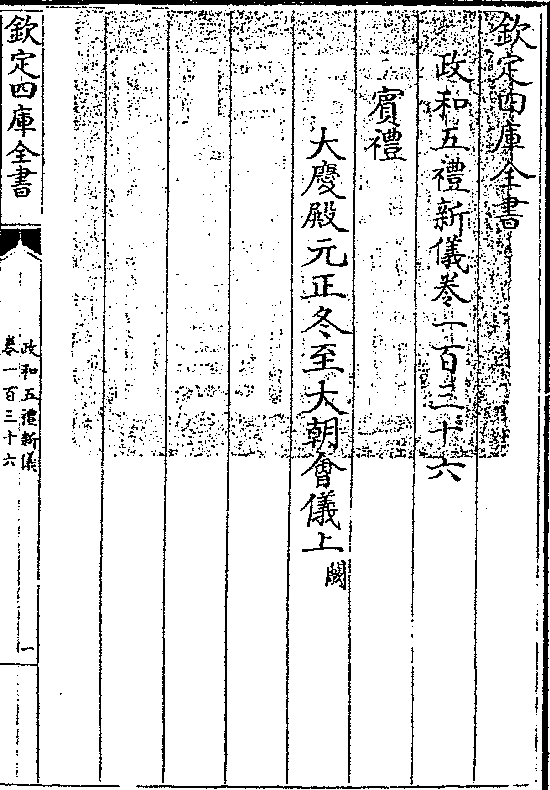 欽定四庫全書
政和五禮新儀卷一百三十六
賓禮
大慶殿元正冬至大朝會儀上闕
欽定四庫全書
政和五禮新儀
卷一百三十六
一